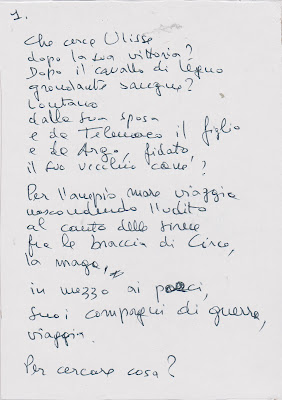 1.
Che cerca Ulisse
dopo la sua vittoria?
Dopo il cavallo di legno
grondante sangue?
Lontano
dalla sua sposa
e da Telemaco il figlio
e da Argo, fidato
il suo vecchio cane?
Per l'ampio mare viaggia
nascondendo l'udito
al canto delle sirene
fra le braccia di Circe,
la maga,
in mezzo ai porci,
suoi compagni di guerra,
viaggia.
Per cercare cosa?